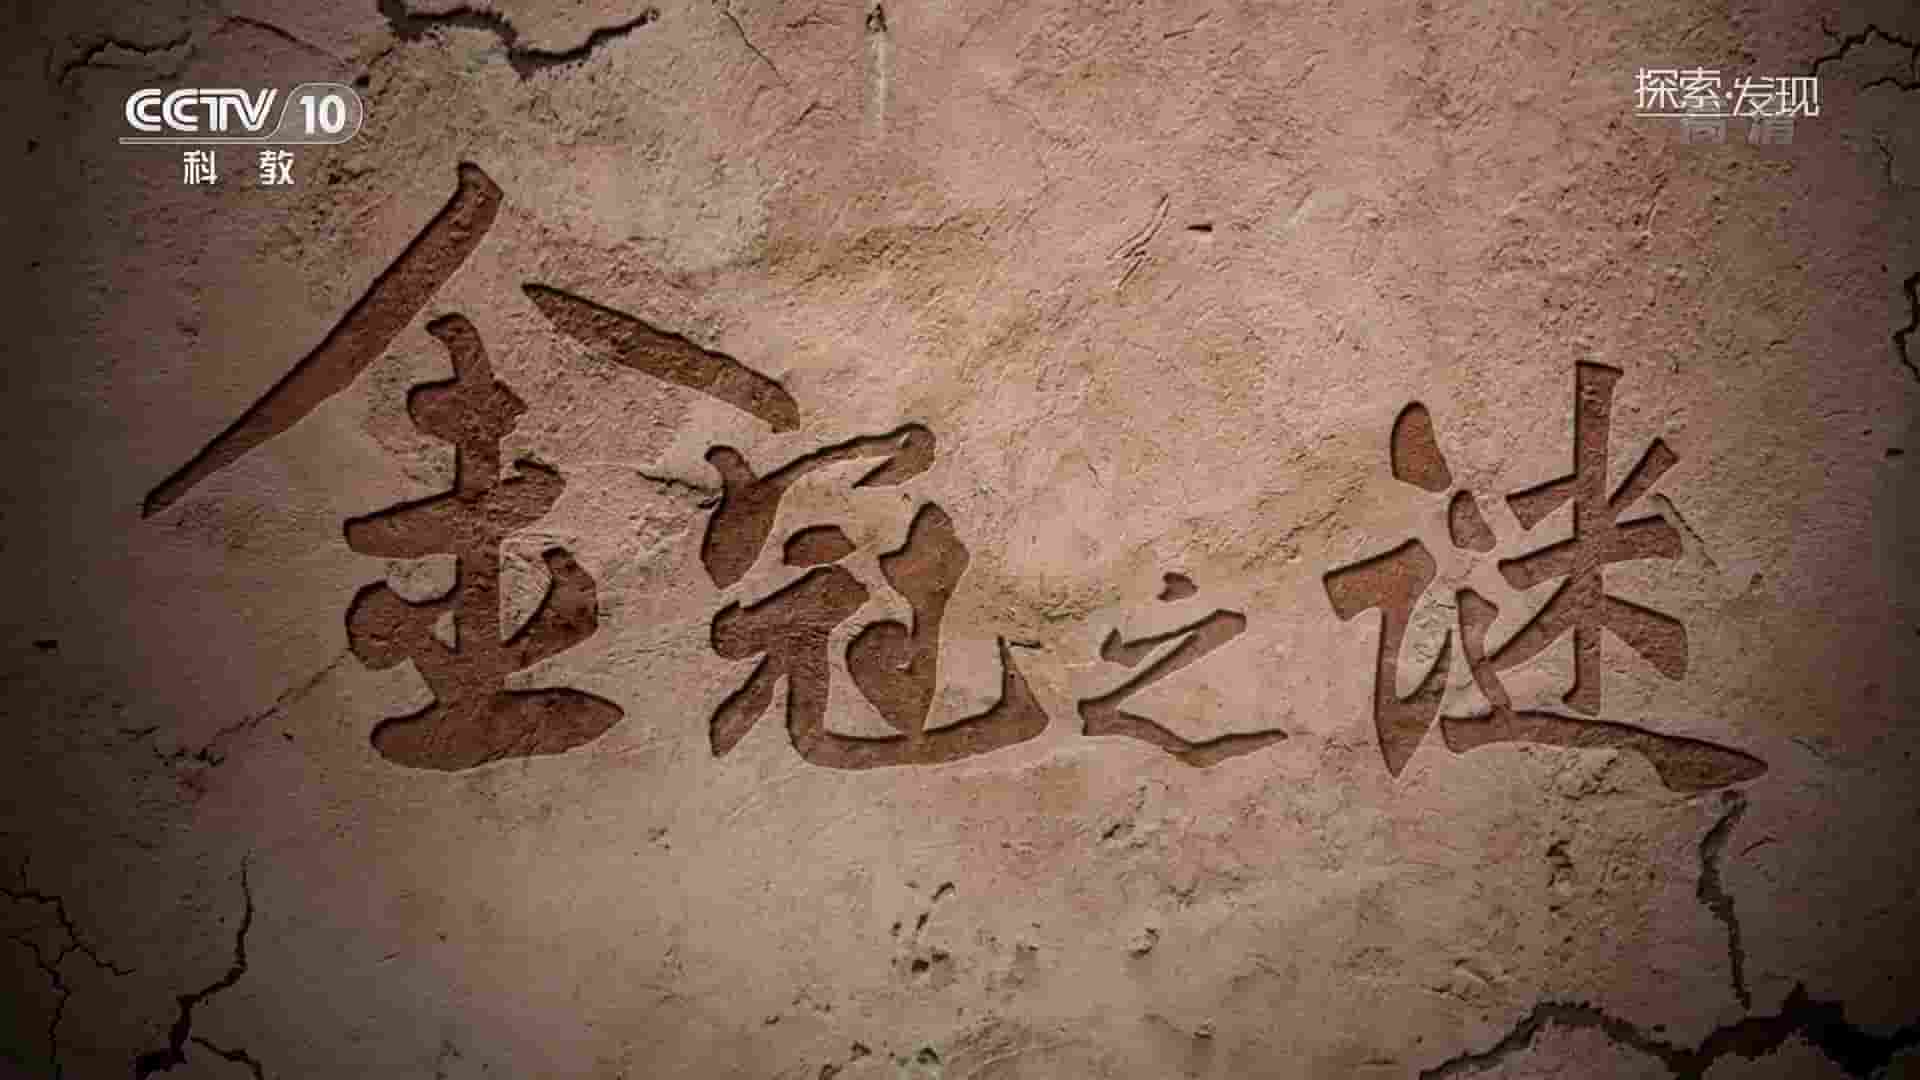 CCTV 10
科 教
探索·发现
高清
金冠之谜